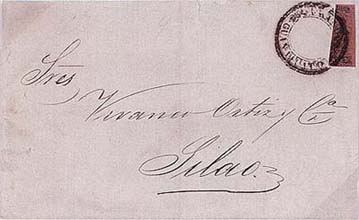 Sres
Vivanco Ortiz y Ca
Silao.